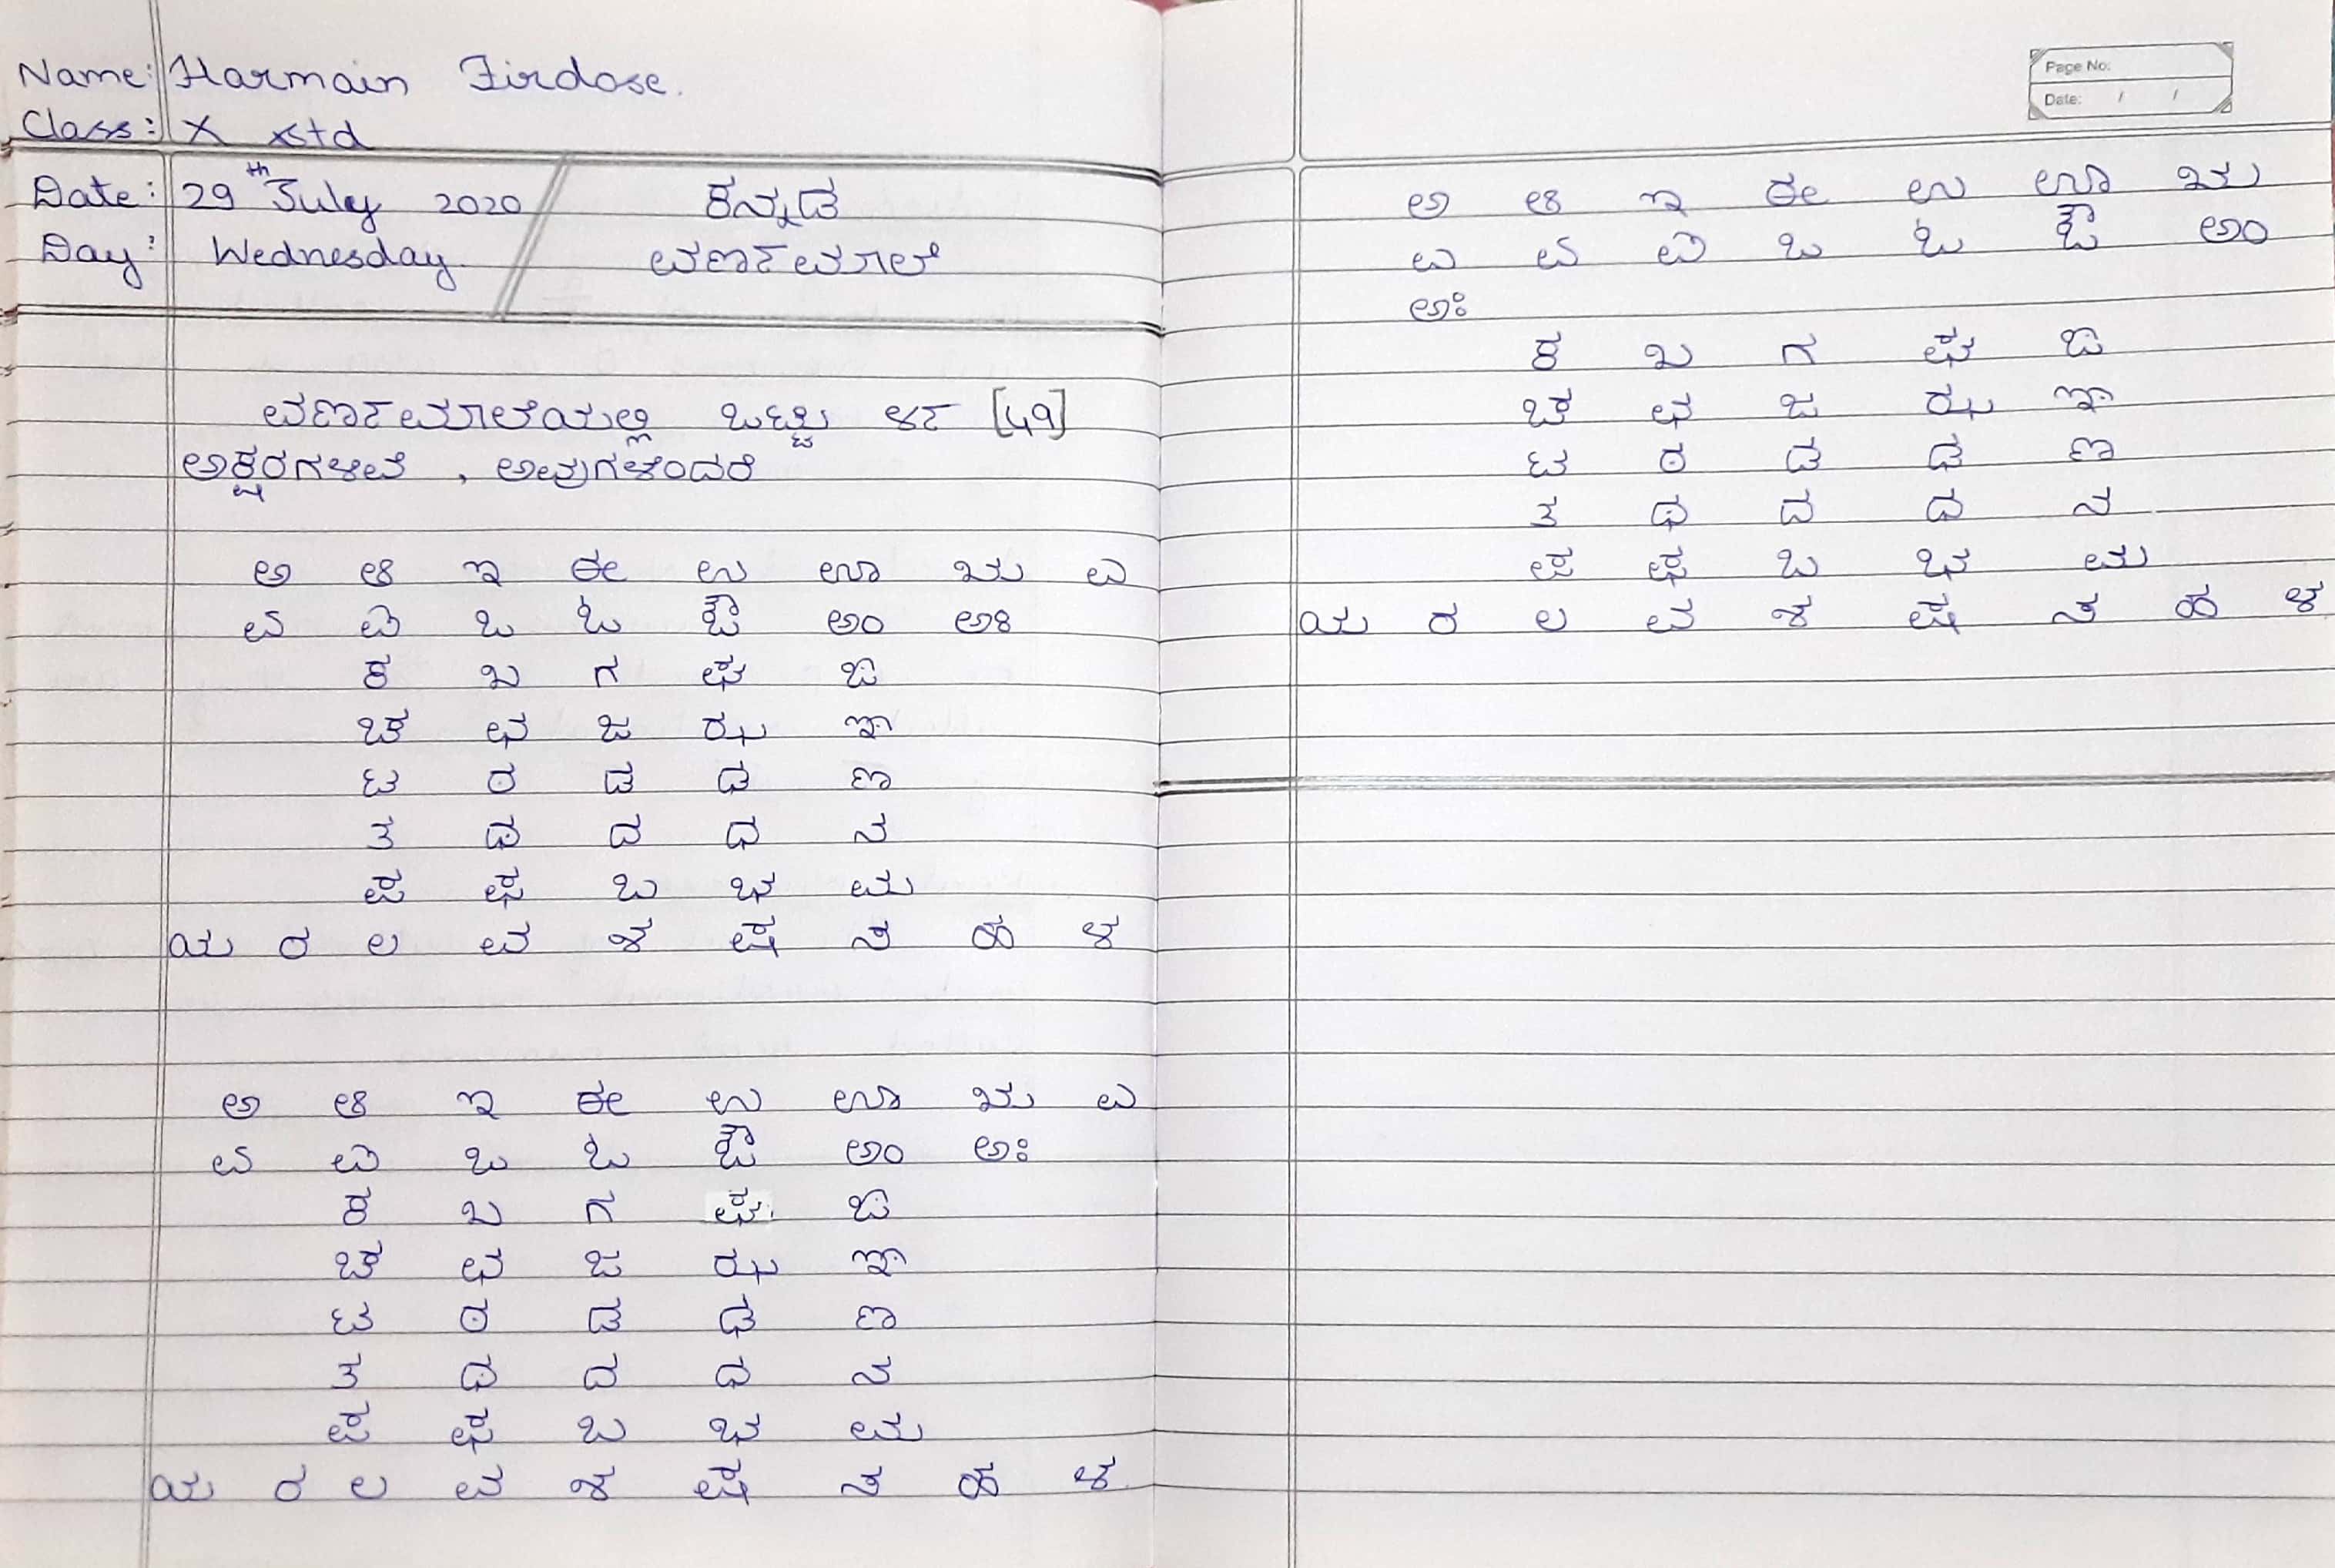 Name: Harmain Firdose.
Class: X std
Date: 29th July 2020 ಕನ್ನಡ
Day: Wednesday. ವರ್ಣಮಾಲೆ
ವರ್ಣಮಾಲೆಯಲ್ಲಿ ಒಟ್ಟು ೪೯ [49]
ಅಕ್ಷರಗಳಿವೆ , ಅವುಗಳೆಂದರೆ
ಅ ಆ ಇ ಈ ಉ ಊ ಋ ಎ
ಏ ಐ ಒ ಓ ಔ ಅಂ ಅಃ
ಕ ಖ ಗ ಘ ಙ
ಚ ಛ ಜ ಝ ಞ
ಟ ಠ ಡ ಢ ಣ
ತ ಥ ದ ಧ ನ
ಪ ಫ ಬ ಭ ಮ
ಯ ರ ಲ ವ ಶ ಷ ಸ ಹ ಳ
ಅ ಆ ಇ ಈ ಉ ಊ ಋ ಎ
ಏ ಐ ಒ ಓ ಔ ಅಂ ಅಃ
ಕ ಖ ಗ ಘ ಙ
ಚ ಛ ಜ ಝ ಞ
ಟ ಠ ಡ ಢ ಣ
ತ ಥ ದ ಧ ನ
ಪ ಫ ಬ ಭ ಮ
ಯ ರ ಲ ವ ಶ ಷ ಸ ಹ ಳ
Page No:
Date: / /
ಅ ಆ ಇ ಈ ಉ ಊ ಋ
ಎ ಏ ಐ ಒ ಓ ಔ ಅಂ
ಅಃ
ಕ ಖ ಗ ಘ ಙ
ಚ ಛ ಜ ಝ ಞ
ಟ ಠ ಡ ಢ ಣ
ತ ಥ ದ ಧ ನ
ಪ ಫ ಬ ಭ ಮ
ಯ ರ ಲ ವ ಶ ಷ ಸ ಹ ಳ